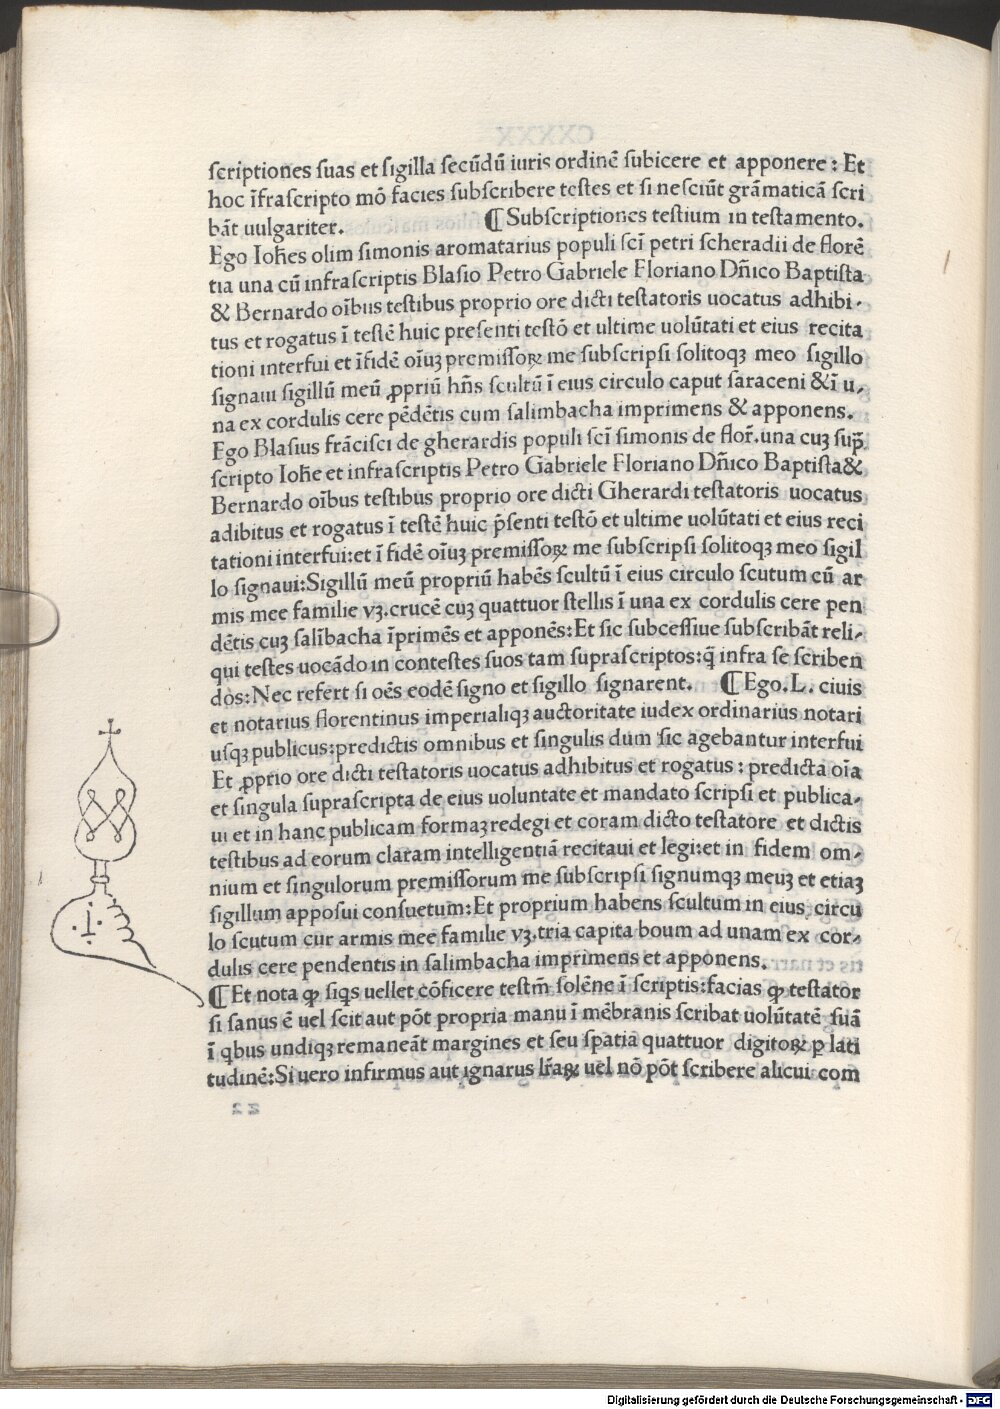 scriptiones suas et sigilla secūdū iuris ordinē subicere et apponere: Et
hoc ĩfrascripto mō facies subscribere testes et si nesciũt grāmaticā scri
bāt uulgariter. ¶ Subscriptiones testium in testamento.
Ego Ioh̄es olim simonis aromatarius populi sc̄i petri scheradii de florē
tia una cū infrascriptis Blasio Petro Gabriele Floriano Dn̄ico Baptista
& Bernardo oībus testibus proprio ore dicti testatoris uocatus adhibi-
tus et rogatus ī testē huic presenti testō et ultime uolūtati et eius recita
tioni interfui et ĩfidē oīuꝫ premissoꝝ me subscripsi solitoqꝫ meo sigillo
signaui sigillū meū ꝓpriū hn̄s scultū ī eius circulo caput saraceni &ī u-
na ex cordulis cere pēdētis cum salimbacha imprimens & apponens.
Ego Blasius frācisci de gherardis populi sc̄i simonis de flor̄. una cuꝫ sup̄
scripto Ioh̄e et infrascriptis Petro Gabriele Floriano Dn̄ico Baptista&
Bernardo oībus testibus proprio ore dicti Gherardi testatoris uocatus
adibitus et rogatus ī testē huic p̄senti testō et ultime uolūtati et eius reci
tationi interfui:et ī fidē oīuꝫ premissoꝝ me subscripsi solitoqꝫ meo sigil
lo signaui:Sigillū meū propriū habēs scultū ī eius circulo scutum cū ar
mis mee familie vꝫ. crucē cuꝫ quattuor stellis ī una ex cordulis cere pen
dētis cuꝫ salībacha īprimēs et apponēs:Et sic subcessiue subscribāt reli-
qui testes uocādo in contestes suos tam suprascriptos:q̄ infra se scriben
dos:Nec refert si oēs eodē signo et sigillo signarent. ¶ Ego.L. ciuis
et notarius florentinus imperialiqꝫ auctoritate iudex ordinarius notari
usqꝫ publicus:predictis omnibus et singulis dum sic agebantur interfui
Et ꝓprio ore dicti testatoris uocatus adhibitus et rogatus: predicta oīa
et singula suprascripta de eius uoluntate et mandato scripsi et publica-
ui et in hanc publicam formaꝫ redegi et coram dicto testatore et dictis
testibus ad eorum claram intelligentiā recitaui et legi:et in fidem om-
nium et singulorum premissorum me subscripsi signumqꝫ meuꝫ et etiaꝫ
sigillum apposui consuetum:Et proprium habens scultum in eius circu
lo scutum cur armis mee familie vꝫ.tria capita boum ad unam ex cor-
dulis cere pendentis in salimbacha imprimens et apponens.
¶ Et nota ꝙ siqs uellet cōficere testm̄ solēne ī scriptis:facias ꝙ testator
si sanus ē uel scit aut pōt propria manu ī mēbranis scribat uolūtatē suā
ī qbus undiqꝫ remaneāt margines et seu spatia quattuor digitoꝝ ꝑ lati
tudinē:Si uero infirmus aut ignarus lr̄aꝝ uel nō pōt scribere alicui com
Digitalisierung gefördert durch die Deutsche Forschungsgemeinschaft - DFG